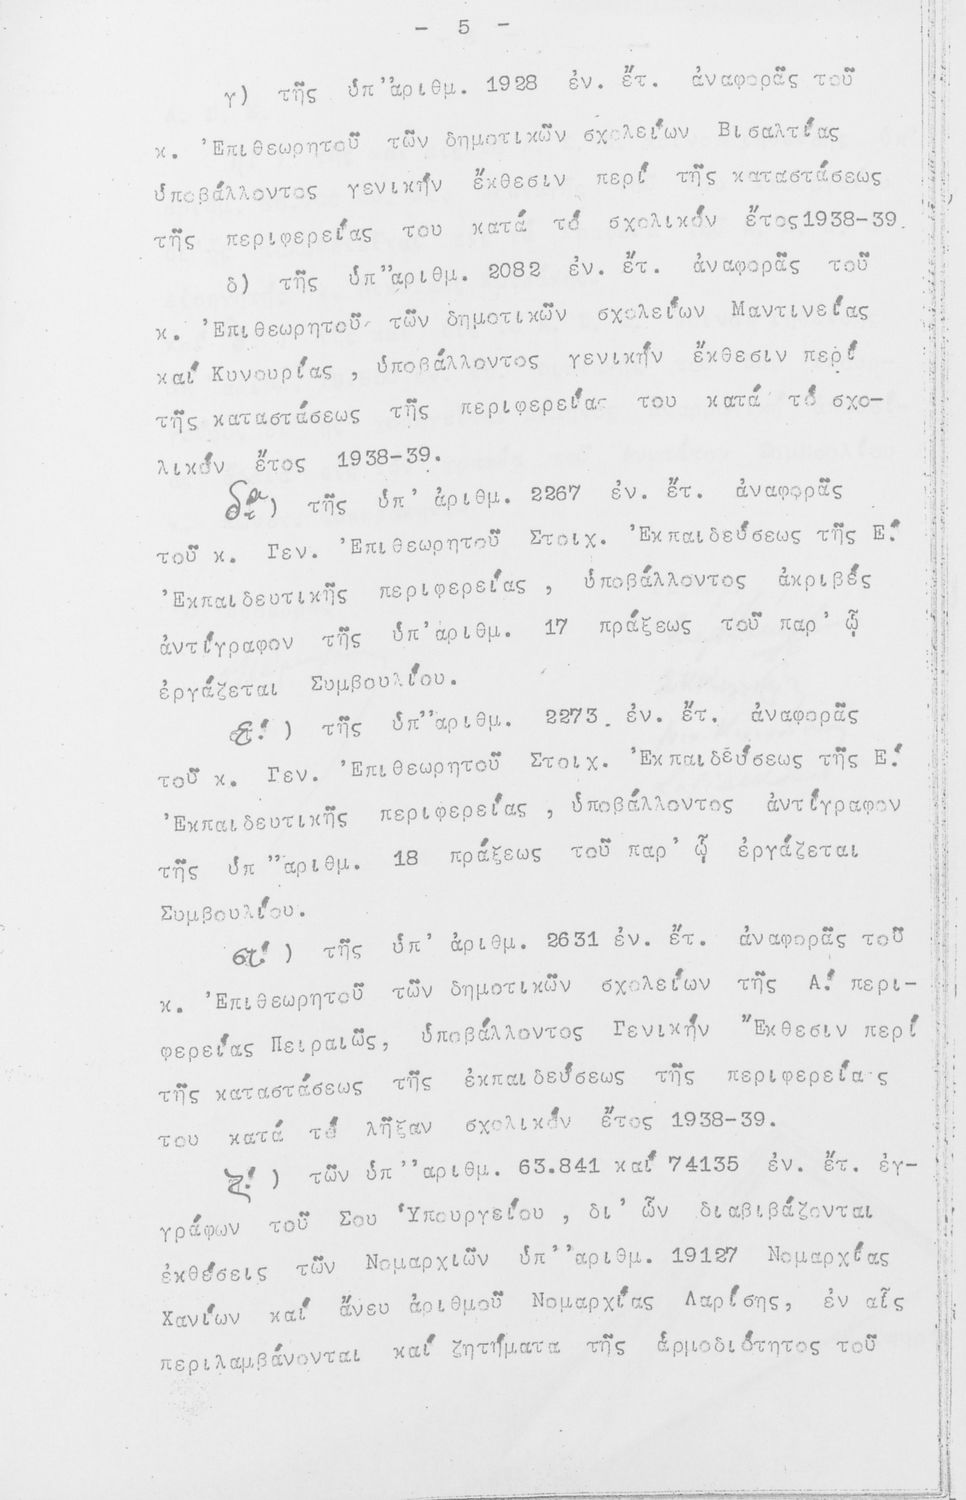 - 5 -
γ) τῆς ὑπ' ἀριθμ. 1928 ἐν. ἔτ. ἀναφορᾶς τοῦ
κ. Ἐπιθεωρητοῦ τῶν δημοτικῶν σχολείων Βισαλτίας
ὑποβάλλοντος γενικήν ἔκθεσιν περί τῆς καταστάσεως
τῆς περιφερείας του κατά τό σχολικόν ἔτος 1938-39.
δ) τῆς ὑπ' ἀριθμ. 2082 ἐν. ἔτ. ἀναφορᾶς τοῦ
κ. Ἐπιθεωρητοῦ τῶν δημοτικῶν σχολείων Μαντινείας
καί Κυνουρίας , ὑποβάλλοντος γενικήν ἔκθεσιν περί
τῆς καταστάσεως τῆς περιφερείας του κατά τό σχο-
λικόν ἔτος 1938-39.
) τῆς ὑπ' ἀριθμ. 2267 ἐν. ἔτ. ἀναφορᾶς
τοῦ κ. Γεν. Ἐπιθεωρητοῦ Στοιχ. Ἐκπαιδεύσεως τῆς Ε!
Ἐκπαιδευτικῆς περιφερείας , ὑποβάλλοντος ἀκριβές
ἀντίγραφον τῆς ὑπ' ἀριθμ. 17 πράξεως τοῦ παρ' ᾧ
ἐργάζεται Συμβουλίου.
ε!) τῆς ὑπ' ἀριθμ. 2273 ἐν. ἔτ. ἀναφορᾶς
τοῦ κ. Γεν. Ἐπιθεωρητοῦ Στοιχ. Ἐκπαιδεύσεως τῆς Ε!
Ἐκπαιδευτικῆς περιφερείας , ὑποβάλλοντος ἀντίγραφον
τῆς ὑπ' ἀριθμ. 18 πράξεως τοῦ παρ' ᾧ ἐργάζεται
Συμβουλίου.
στ!) τῆς ὑπ' ἀριθμ. 2631 ἐν. ἔτ. ἀναφορᾶς τοῦ
κ. Ἐπιθεωρητοῦ τῶν δημοτικῶν σχολείων τῆς Α! περι-
φερείας Πειραιῶς, ὑποβάλλοντος Γενικήν Ἔκθεσιν περί
τῆς καταστάσεως τῆς ἐκπαιδεύσεως τῆς περιφερείας
του κατά τό λῆξαν σχολικόν ἔτος 1938-39.
ζ!) τῶν ὑπ' ἀριθμ. 63.841 καί 74135 ἐν. ἔτ. ἐγ-
γράφων τοῦ Σου Ὑπουργείου , δι' ὧν διαβιβάζονται
ἐκθέσεις τῶν Νομαρχιῶν ὑπ' ἀριθμ. 19127 Νομαρχίας
Χανίων καί ἄνευ ἀριθμοῦ Νομαρχίας Λαρίσης, ἐν αἷς
περιλαμβάνονται καί ζητήματα τῆς ἁρμοδιότητος τοῦ